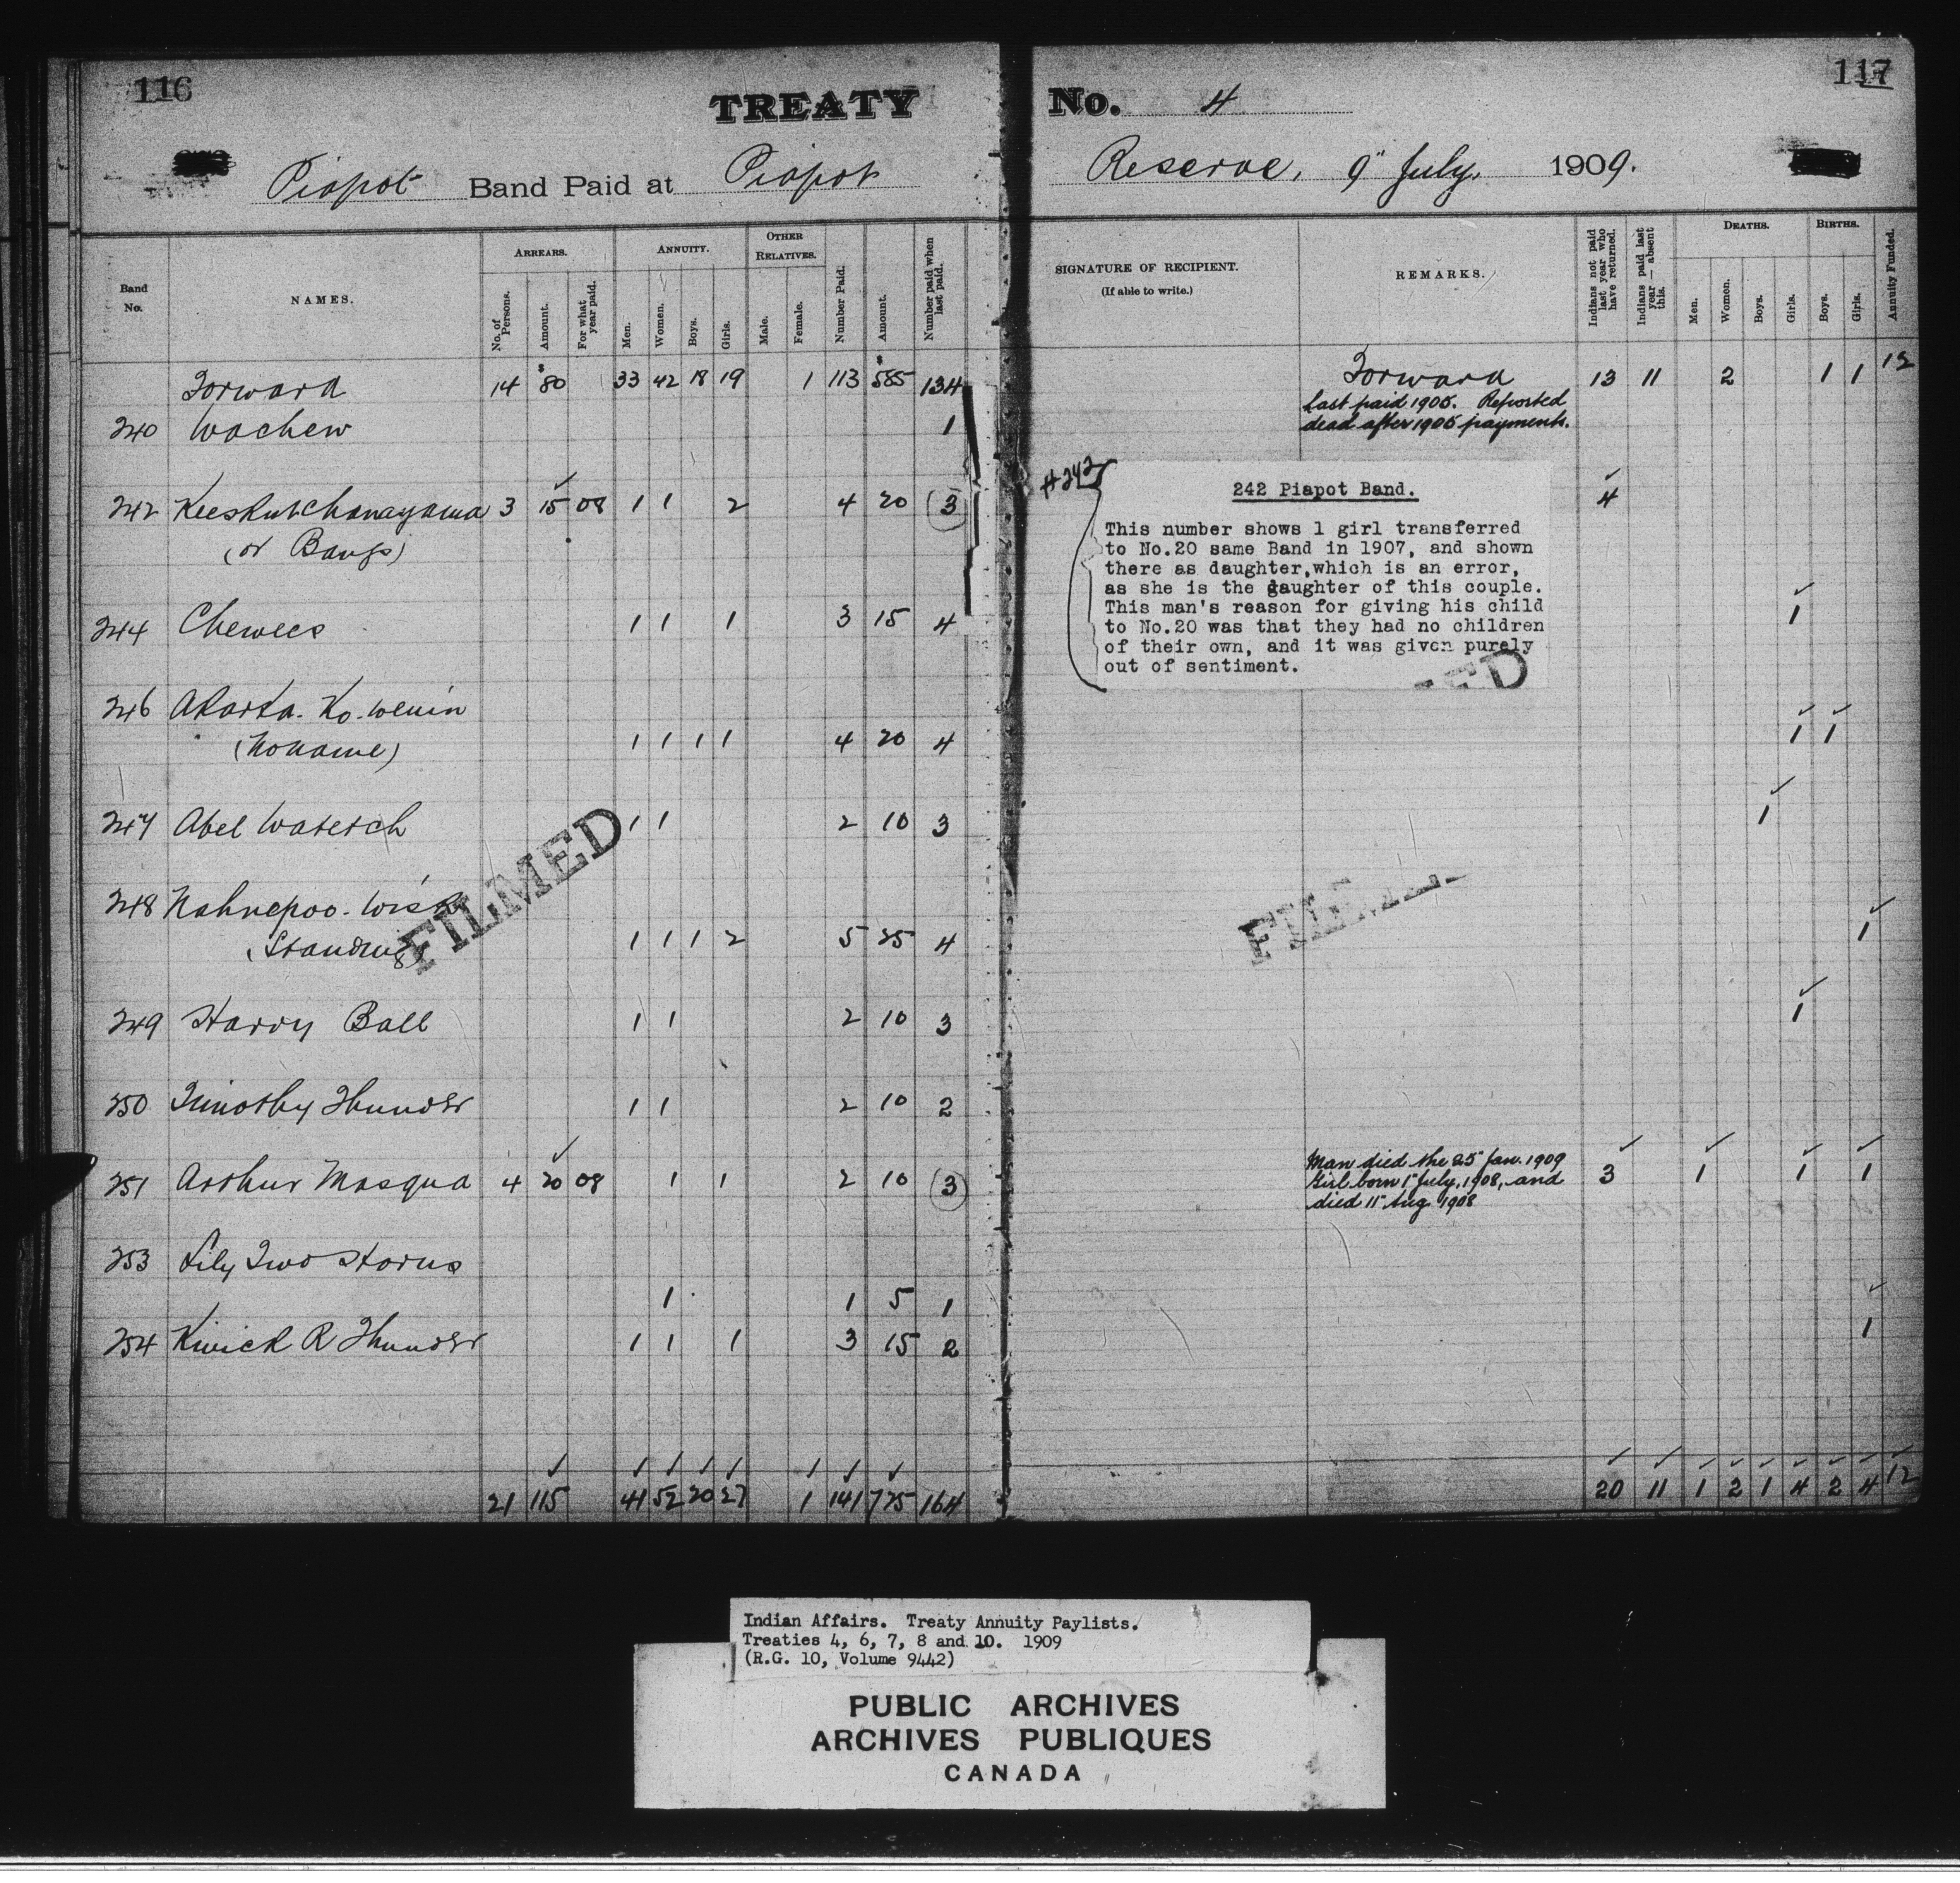 116
TREATY No. 4
117
Piapot Band Paid at Piapot Reserve, 9" July, 1909.
Band No. NAMES. ARREARS. No. of Persons. Amount. For what year paid. ANNUITY. Men. Women. Boys. Girls. OTHER RELATIVES. Male. Female. Number Paid. Amount. Number paid when last paid.
SIGNATURE OF RECIPIENT. (If able to write.) REMARKS. Indians not paid last year who have returned. Indians paid last year — absent this. DEATHS. Men. Women. Boys. Girls. BIRTHS. Boys. Girls. Annuity Funded.
Forward 14 $80 33 42 18 19 1 113 $585 134 Forward 13 11 2 1 1 12
240 Wachew 1 Last paid 1905. Reported
dead after 1905 payments.
#242
242 Piapot Band.
242 3 15 08 1 1 2 4 20 (3) 4
(or Bangs)
This number shows 1 girl transferred
to No.20 same Band in 1907, and shown
there as daughter,which is an error,
as she is the daughter of this couple.
This man's reason for giving his child
to No.20 was that they had no children
of their own, and it was given purely
out of sentiment.
244 Chewees 1 1 1 3 15 4 1
246 Akaska. Ko. wenin
(Noname) 1 1 1 1 4 20 4 1 1
247 Abel Watetch 1 1 2 10 3 1
248 Nahnepoo. Wisk
(Standing) 1 1 1 2 5 25 4 1
FILMED
249 Harry Ball 1 1 2 10 3 1
250 Timothy Thunder 1 1 2 10 2
251 Arthur Masqua 4 20 08 1 1 2 10 (3) Man died the 25" Jan. 1909 3 1 1 1
Girl born 1" July, 1908, and
died 11" Aug 1908
253 Lily Two Horns
1 1 5 1
254 Kiwick R Thunder 1 1 1 3 15 2 1
21 115 41 52 20 27 1 141 725 164 20 11 1 2 1 4 2 4 12
Indian Affairs. Treaty Annuity Paylists.
Treaties 4, 6, 7, 8 and 10. 1909
(R.G. 10, Volume 9442)
PUBLIC ARCHIVES
ARCHIVES PUBLIQUES
CANADA